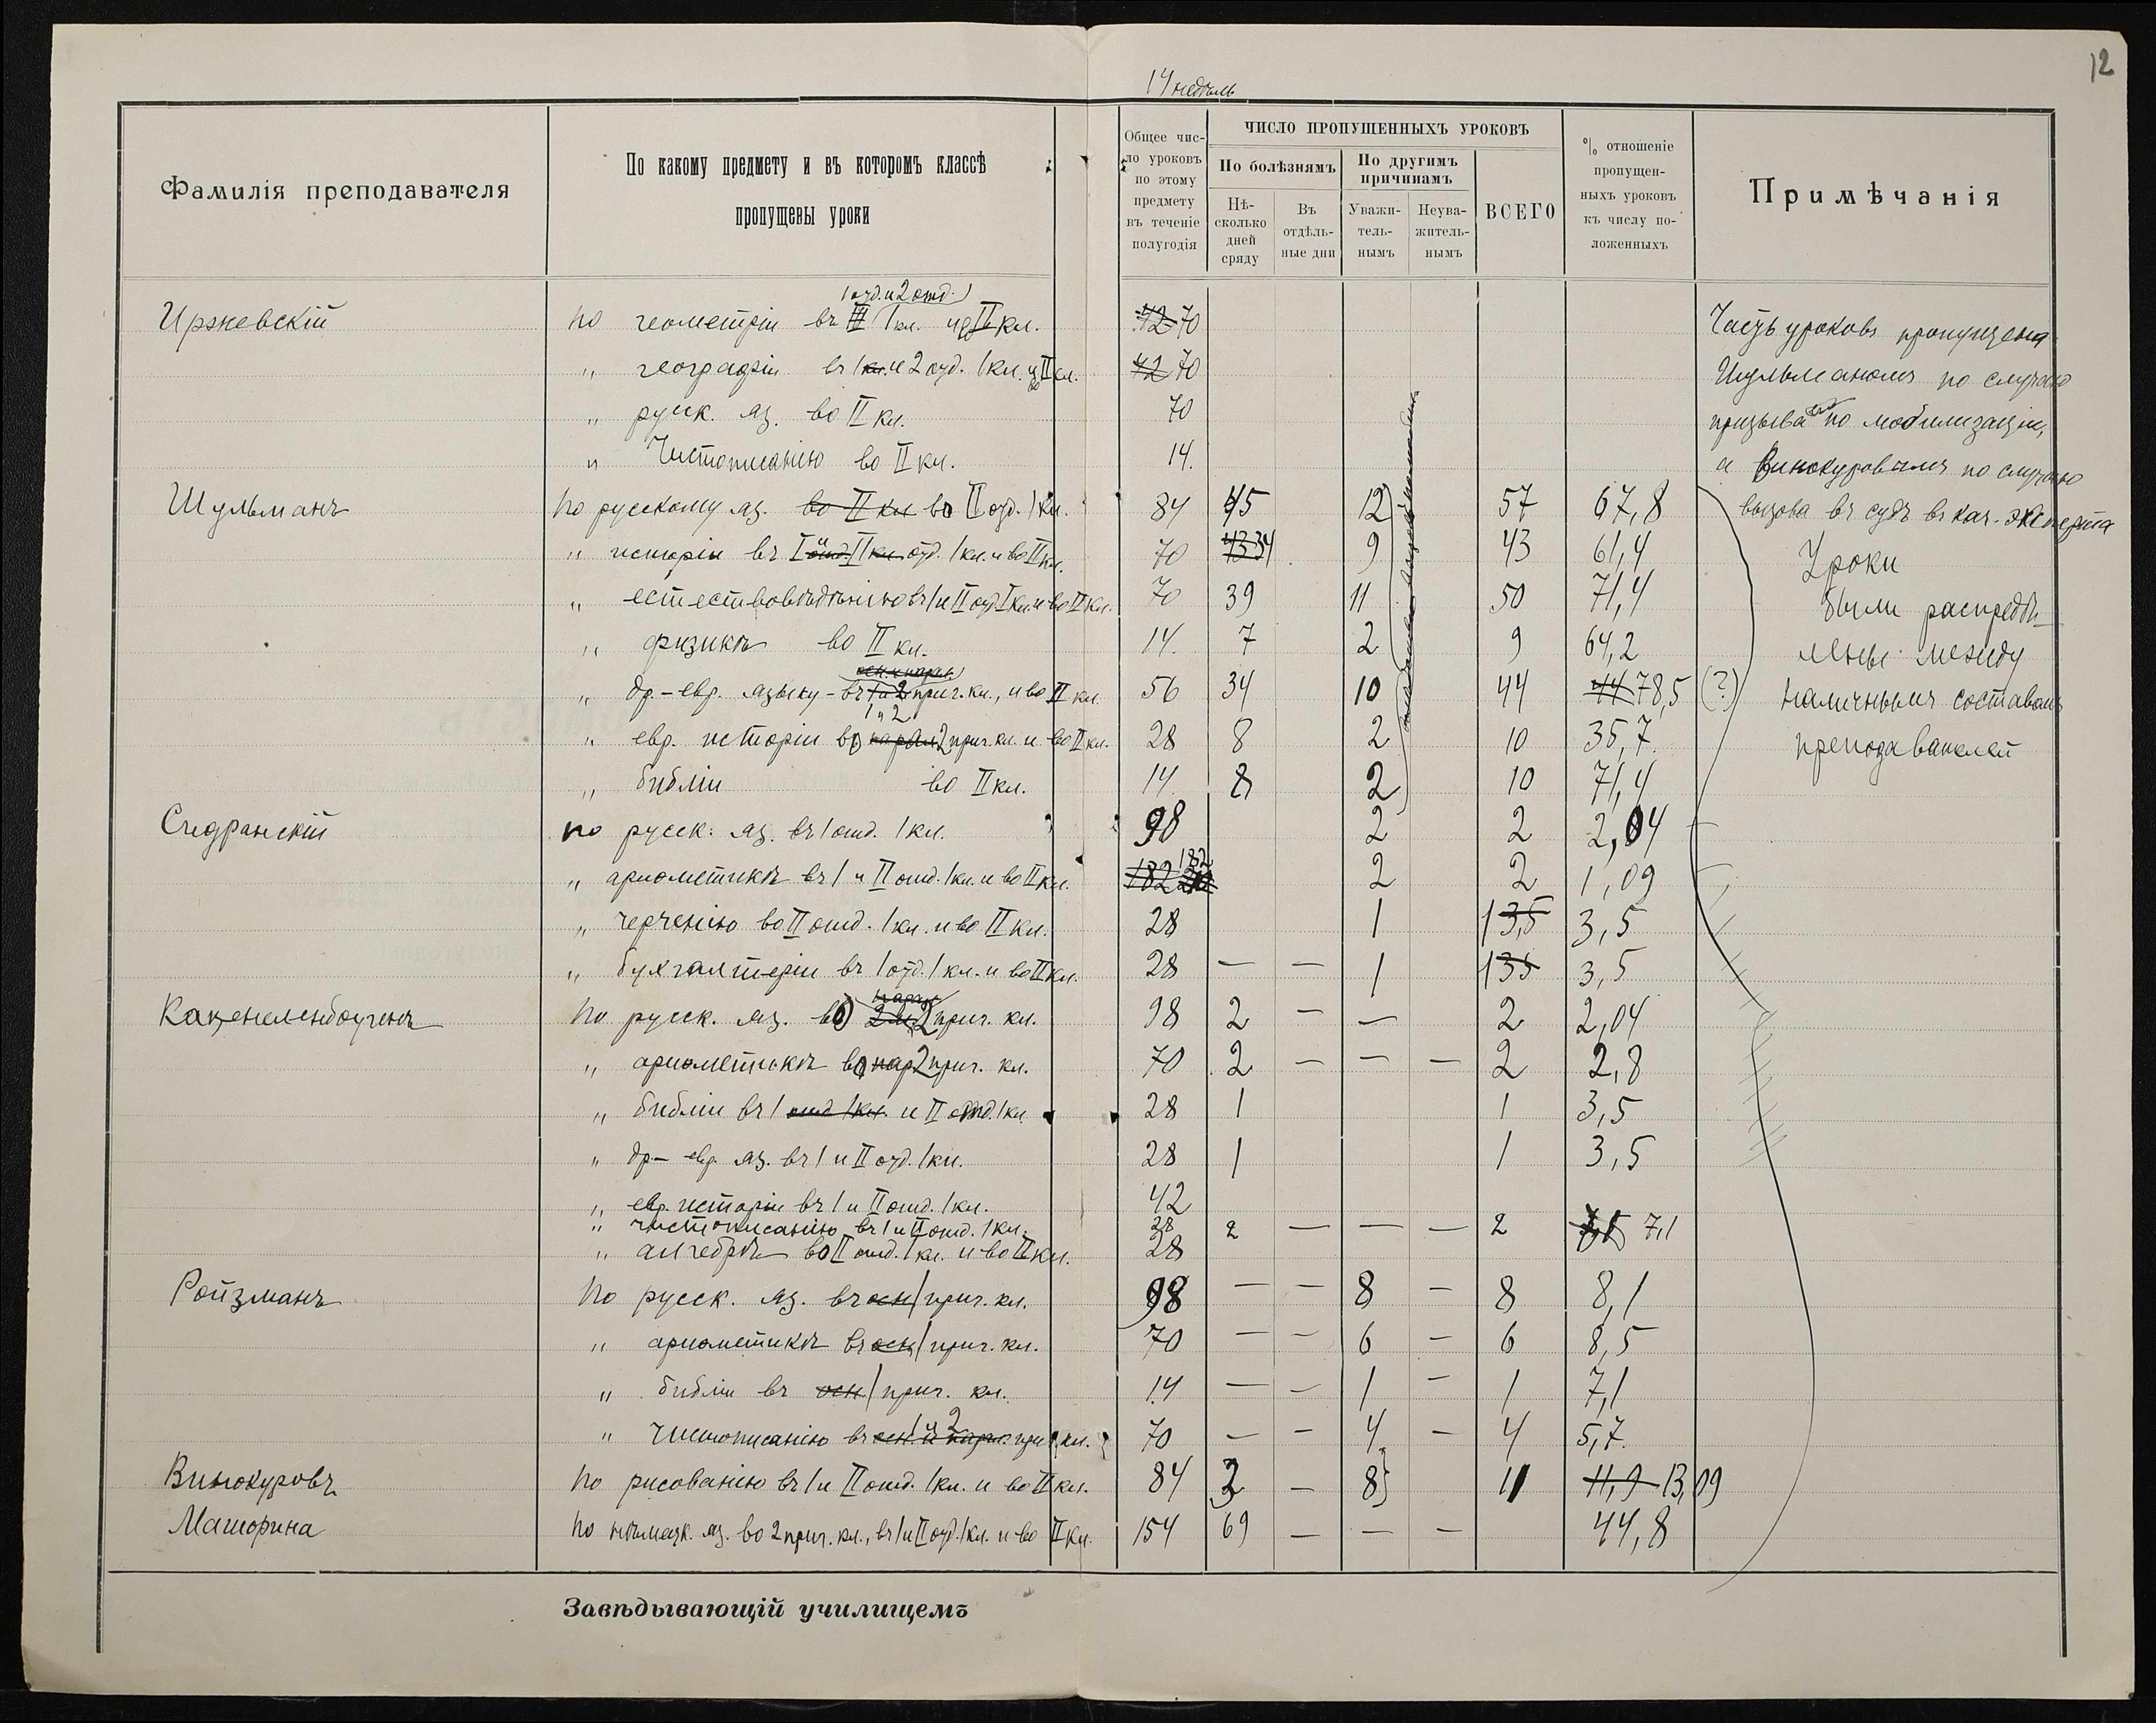 12
14 недѣль
Фамилія преподавателя
По какому предмету и въ которомъ классѣ
пропущены уроки
Общее чис-
ло уроковъ
по этому
предмету
въ теченіе
полугодія
ЧИСЛО ПРОПУЩЕННЫХЪ УРОКОВЪ
По болѣзнямъ
По другимъ
причинамъ
Нѣ-
сколько
дней
сряду
Въ
отдѣль-
ные дни
Уважи-
тель-
нымъ
Неува-
житель-
нымъ
ВСЕГО
% отношеніе
пропущен-
ныхъ уроковъ
къ числу по-
ложенныхъ
Примѣчанія
1 отд. и 2 отд.
Иржевскій По геометріи въ I кл. II кл. 42 70
" географіи въ 1 кл. и 2 отд. 1 кл. и II кл. 42 70
" русск. яз. во II кл. 70
" Чистописанію во II кл. 14.
Шульманъ По русскому яз. во II кл. во II отд. 1 кл. 84 45 12 57 67,8
" исторіи въ I и II отд. 1 кл. и во II кл. 70 43 34 9 43 61,4
" естествовѣдѣнію въ 1 и II отд. I кл. и во II кл. 70 39 11 50 71,4
" физикѣ во II кл. 14. 7 2 9 64,2
осн. и парал.
" др.-евр. языку - въ 1 и 2 приг. кл., и во II кл. 56 34 10 44 44 78,5 (?)
1 и 2
" евр. исторіи во парал 2 приг. кл. и во II кл. 28 8 2 10 35,7.
" библіи во II кл. 14. 8 2 10 71,4
Часть уроковъ пропущена
Шульманомъ по случаю
призыва по мобилизаціи,
а Винокуровымъ по случаю
вызова въ судъ въ кач. эксперта
Уроки
были распредѣ-
лены между
наличнымъ составомъ
преподавателей
Сидранскій по русск. яз. въ 1 отд. 1 кл. 98 2 2 2,04
" ариөметикѣ въ 1 и II отд. 1 кл. и во II кл. 182 182 2 2 1,09
" черченію во II отд. 1 кл. и во II кл. 28 1 1 3,5 3,5
" бухгалтеріи въ 1 отд. 1 кл. и во II кл. 28 — — 1 1 3,5 3,5
Каценеленбогенъ По русск. яз. во 2 приг. кл. 98 2 — — 2 2,04
" ариөметикѣ во пар 2 приг. кл. 70 2 — — — 2 2,8
" библіи въ 1 отд 1 кл. и II отд. 1 кл. 28 1 1 3,5
" др-евр. яз. въ 1 и II отд. 1 кл. 28 1 1 3,5
" евр. исторіи въ 1 и II отд. 1 кл. 42
" чистописанію въ 1 и II отд. 1 кл. 28 2 — — — 2 7,1
" алгебрѣ во II отд. 1 кл. и во II кл. 28
Ройзманъ По русск. яз. въ осн 1 приг. кл. 98 — — 8 — 8 8,1
" ариөметикѣ въ осн 1 приг. кл. 70 — — 6 — 6 8,5
" библіи въ осн 1 приг. кл. 14 — — 1 — 1 7,1
1 и 2
" Чистописанію въ осн. и парал. приг. кл. 70 — — 4 — 4 5,7.
Винокуровъ По рисованію въ 1 и II отд. 1 кл. и во II кл. 84 3 — 8 11 11,9 13,09
Маторина По нѣмецк. яз. во 2 приг. кл., въ 1 и II отд. 1 кл. и во II кл. 154 69 — — — 44,8
Завѣдывающій училищемъ